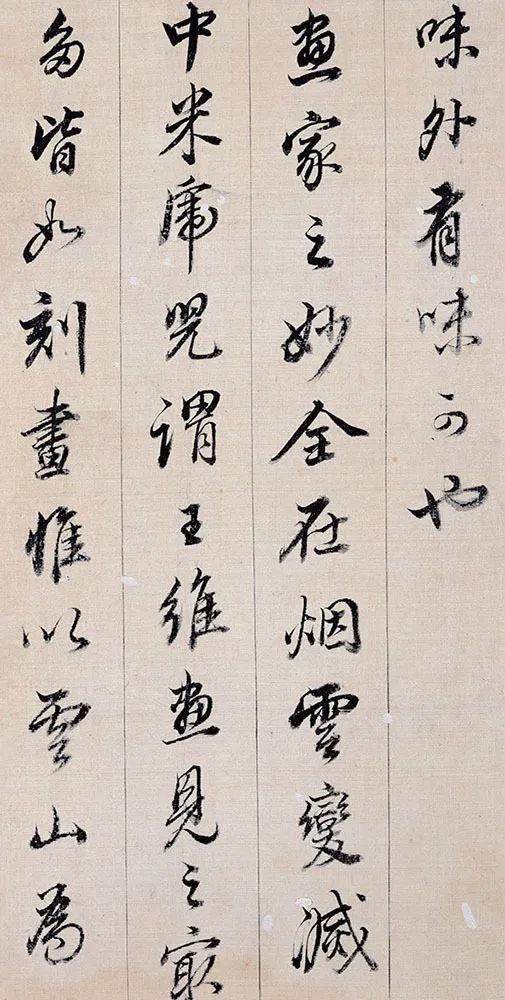 味外有味可也
畫家之妙全在烟雲變滅
中米虎兒謂王維畫見之最
多皆如刻畫惟以雲山為